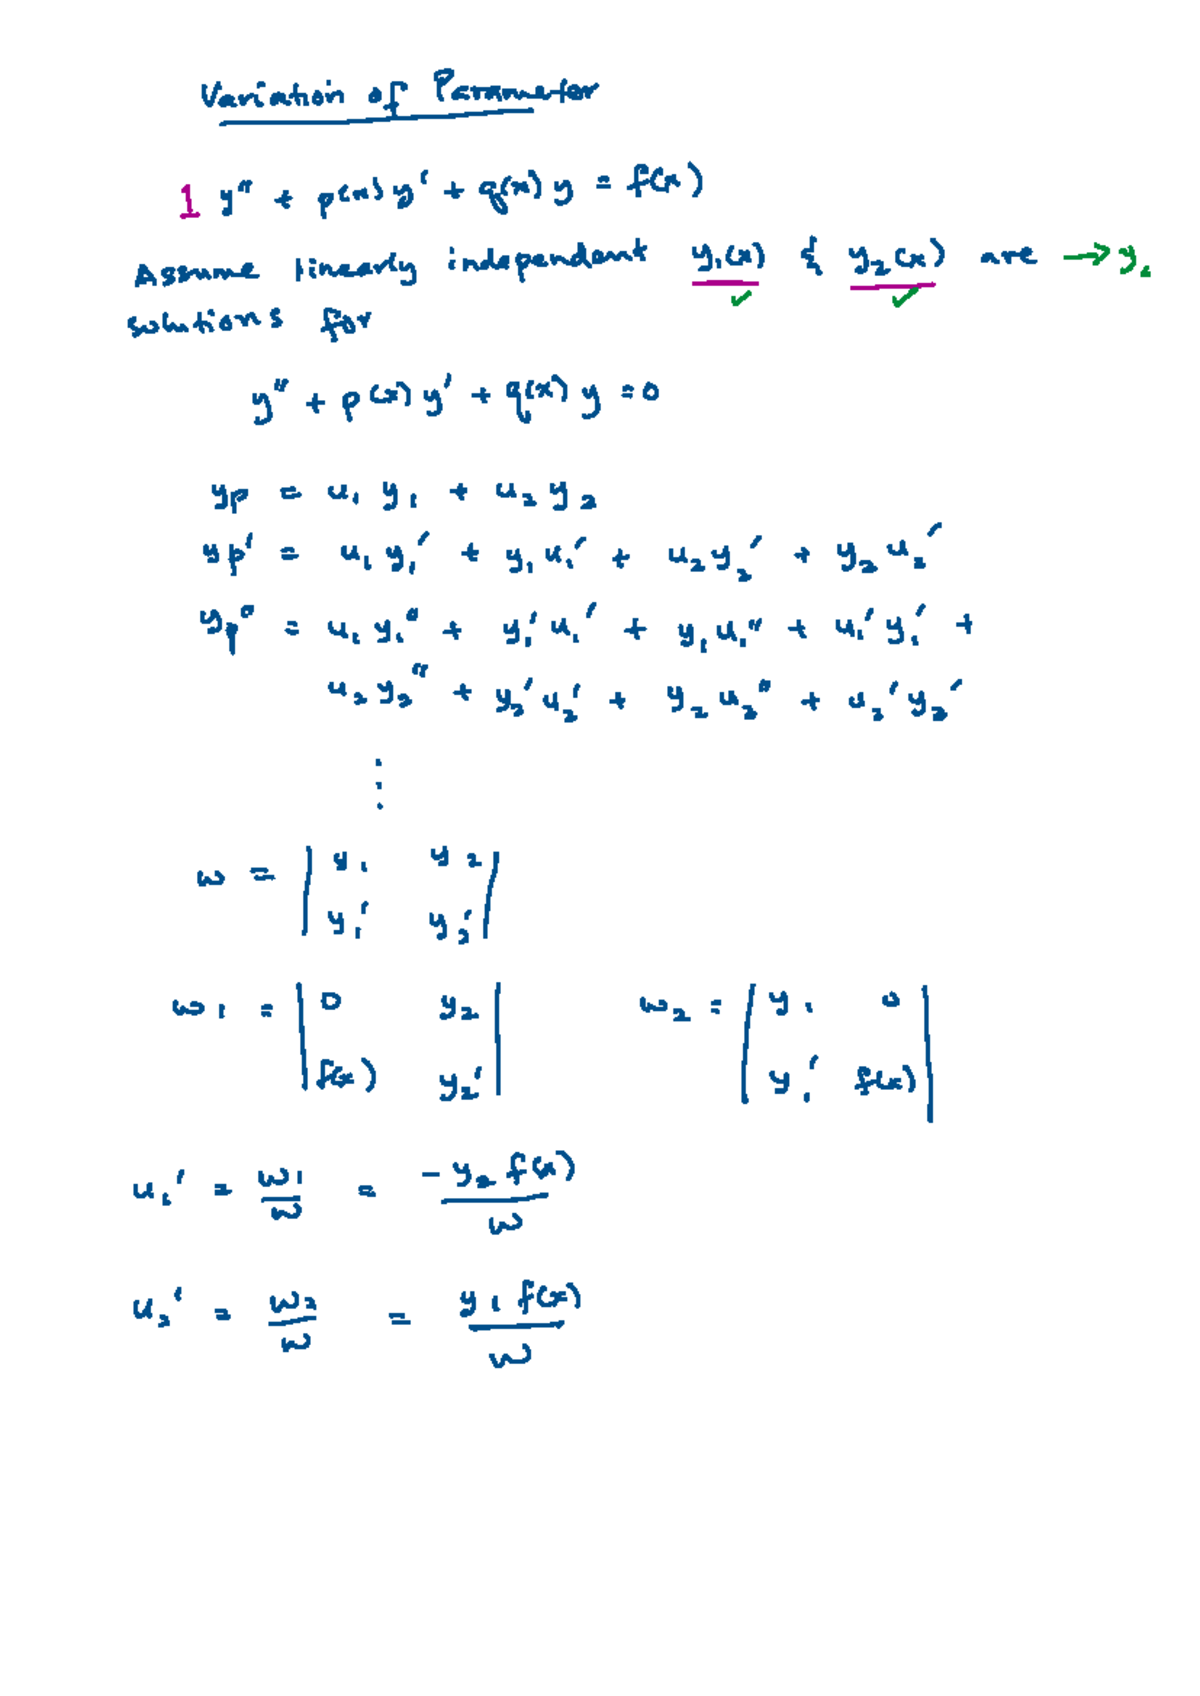 Variation of Parameter
1 y" + p(x) y' + q(x) y = f(x)
Assume linearly independent y₁(x) & y₂(x) are → y꜀
solutions for
y" + p(x) y' + q(x) y = 0
yp = u₁ y₁ + u₂ y₂
yp' = u₁ y₁' + y₁ u₁' + u₂ y₂' + y₂ u₂'
yp" = u₁ y₁" + y₁' u₁' + y₁ u₁" + u₁' y₁' +
u₂ y₂" + y₂' u₂' + y₂ u₂" + u₂' y₂'
⋮
w = | y₁ y₂ |
| y₁' y₂' |
w₁ = | 0 y₂ | w₂ = | y₁ 0 |
| f(x) y₂' | | y₁' f(x) |
u₁' = w₁/w = - y₂ f(x)/w
u₂' = w₂/w = y₁ f(x)/w